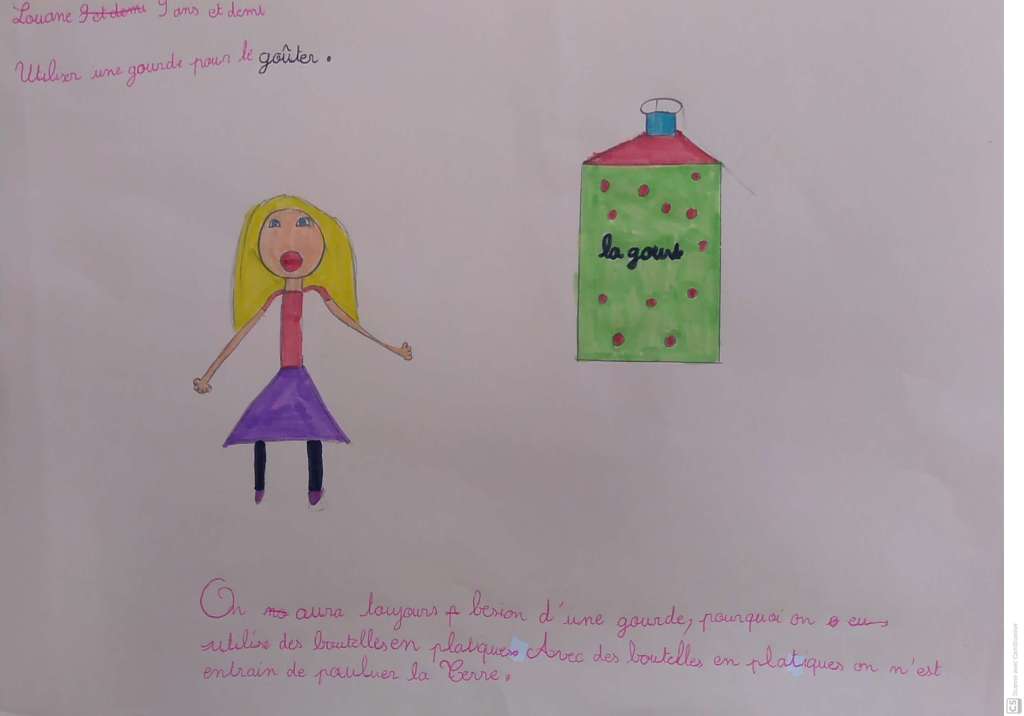 Louane 9 et demi 9 ans et demi
Utiliser une gourde pour le goûter.
la gourde
On aura toujours besion d'une gourde, pourquoi on
utilise des boutelles en platiques Avec des boutelles en platiques on n'est
entrain de pauluer la Terre.
CS Scanné avec CamScanner